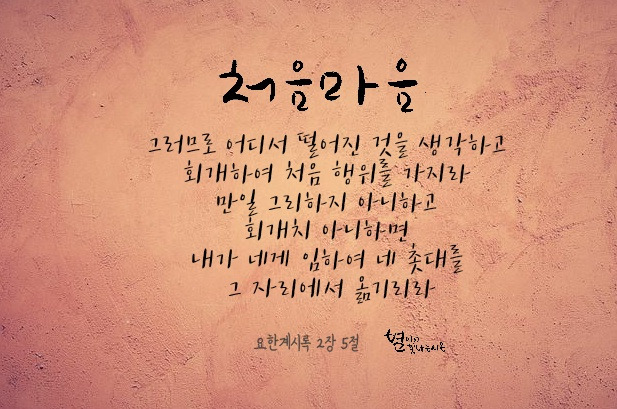 처음마음
그러므로 어디서 떨어진 것을 생각하고
회개하여 처음 행위를 가지라
만일 그리하지 아니하고
회개치 아니하면
내가 네게 임하여 네 촛대를
그 자리에서 옮기리라
요한계시록 2장 5절
별